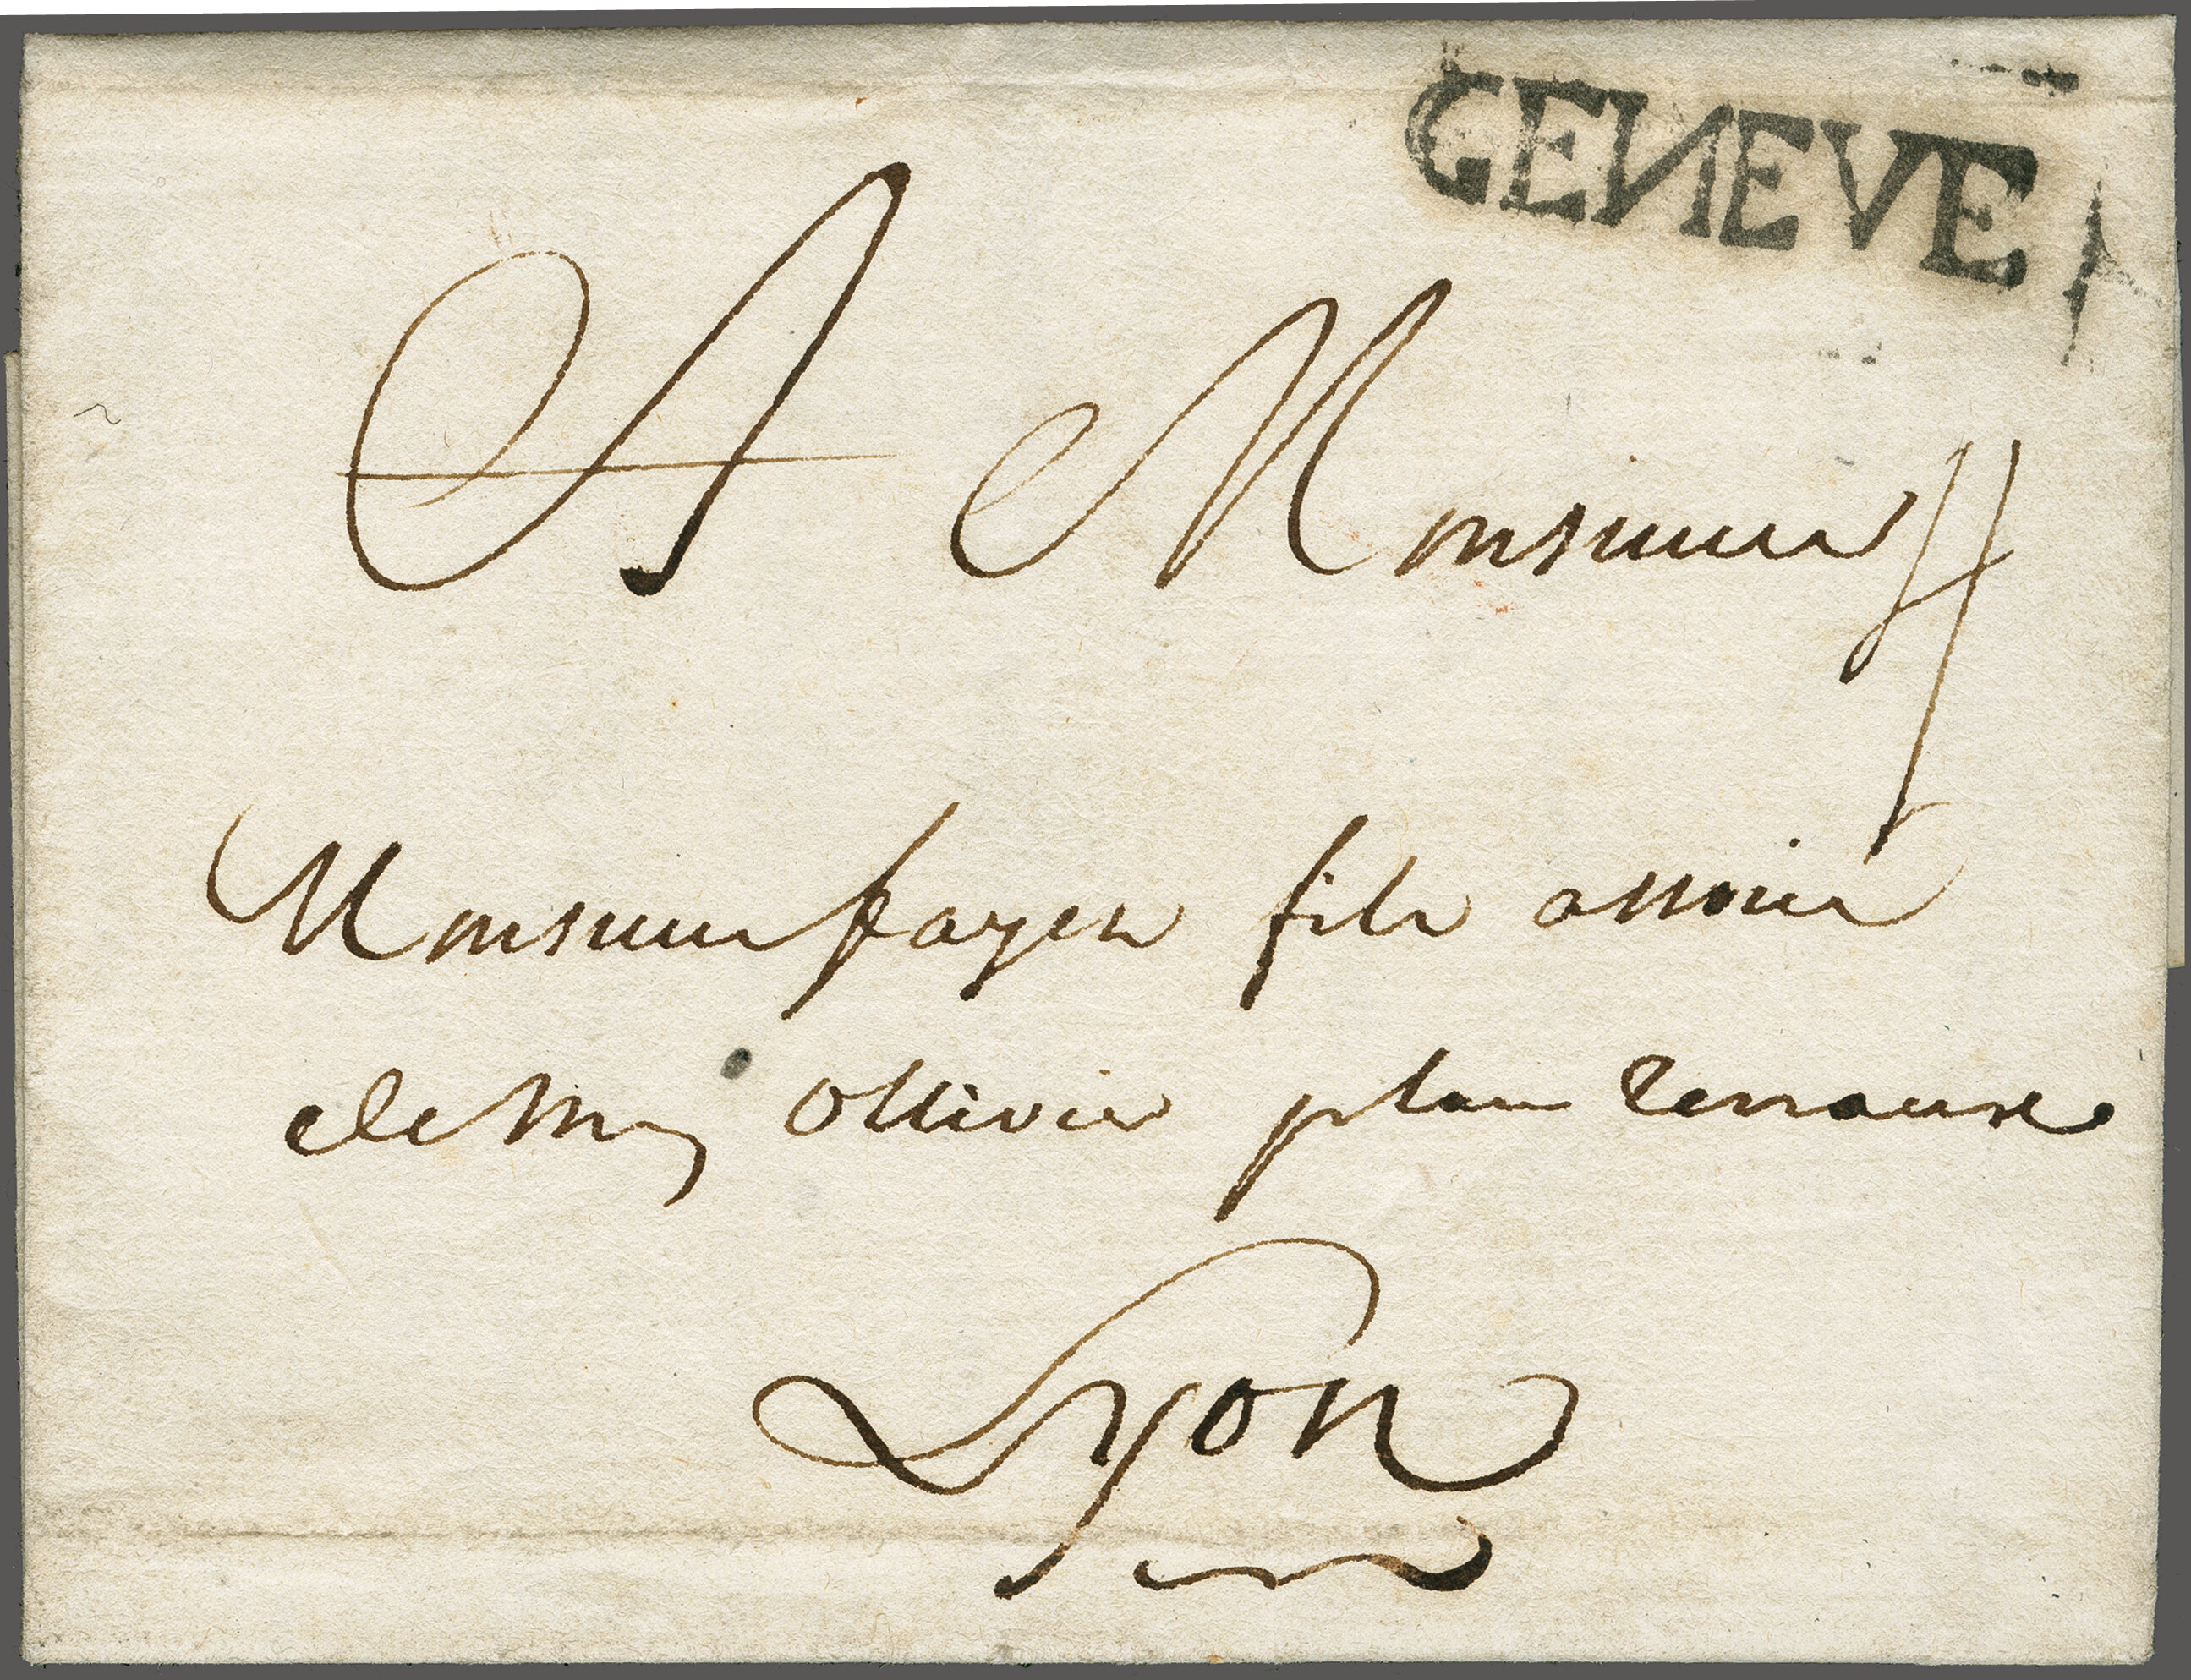 GENEVE
A Monsieur
Monsieur payen fils associé
de Mrs Ollivier place terreaux
Lyon